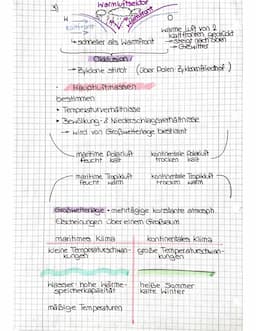 3)
Warmluftsektor
H
O
Kaltfront
Warmfront
→ schneller als Warmfront
warme Luft von 2
Kaltfronten gedrückt
→ steigt nach oben
→ Gewitter
Okklusion
→ Zyklone stirbt (über Polen Zyklonenfriedhof)
• Hauptluftmassen
bestimmen
• Temperaturverhältnisse
• Bewölkung- & Niederschlagsverhältnisse
→ wird von Großwetterlage bestimmt
maritime Polarluft
feucht kalt
kontinentale Polarluft
trocken kalt
maritime Tropikluft
feucht warm
kontinentale Tropikluft
trocken warm
Großwetterlage - mehrtägige konstante atmosph.
Erscheinungen über einem Großraum
maritimes Klima
kontinentales Klima
kleine Temperaturschwan-
kungen
große Temperaturschwan-
kungen
Wasser: hohe Wärme-
speicherkapazität
heiße Sommer
kalte Winter
mäßige Temperaturen